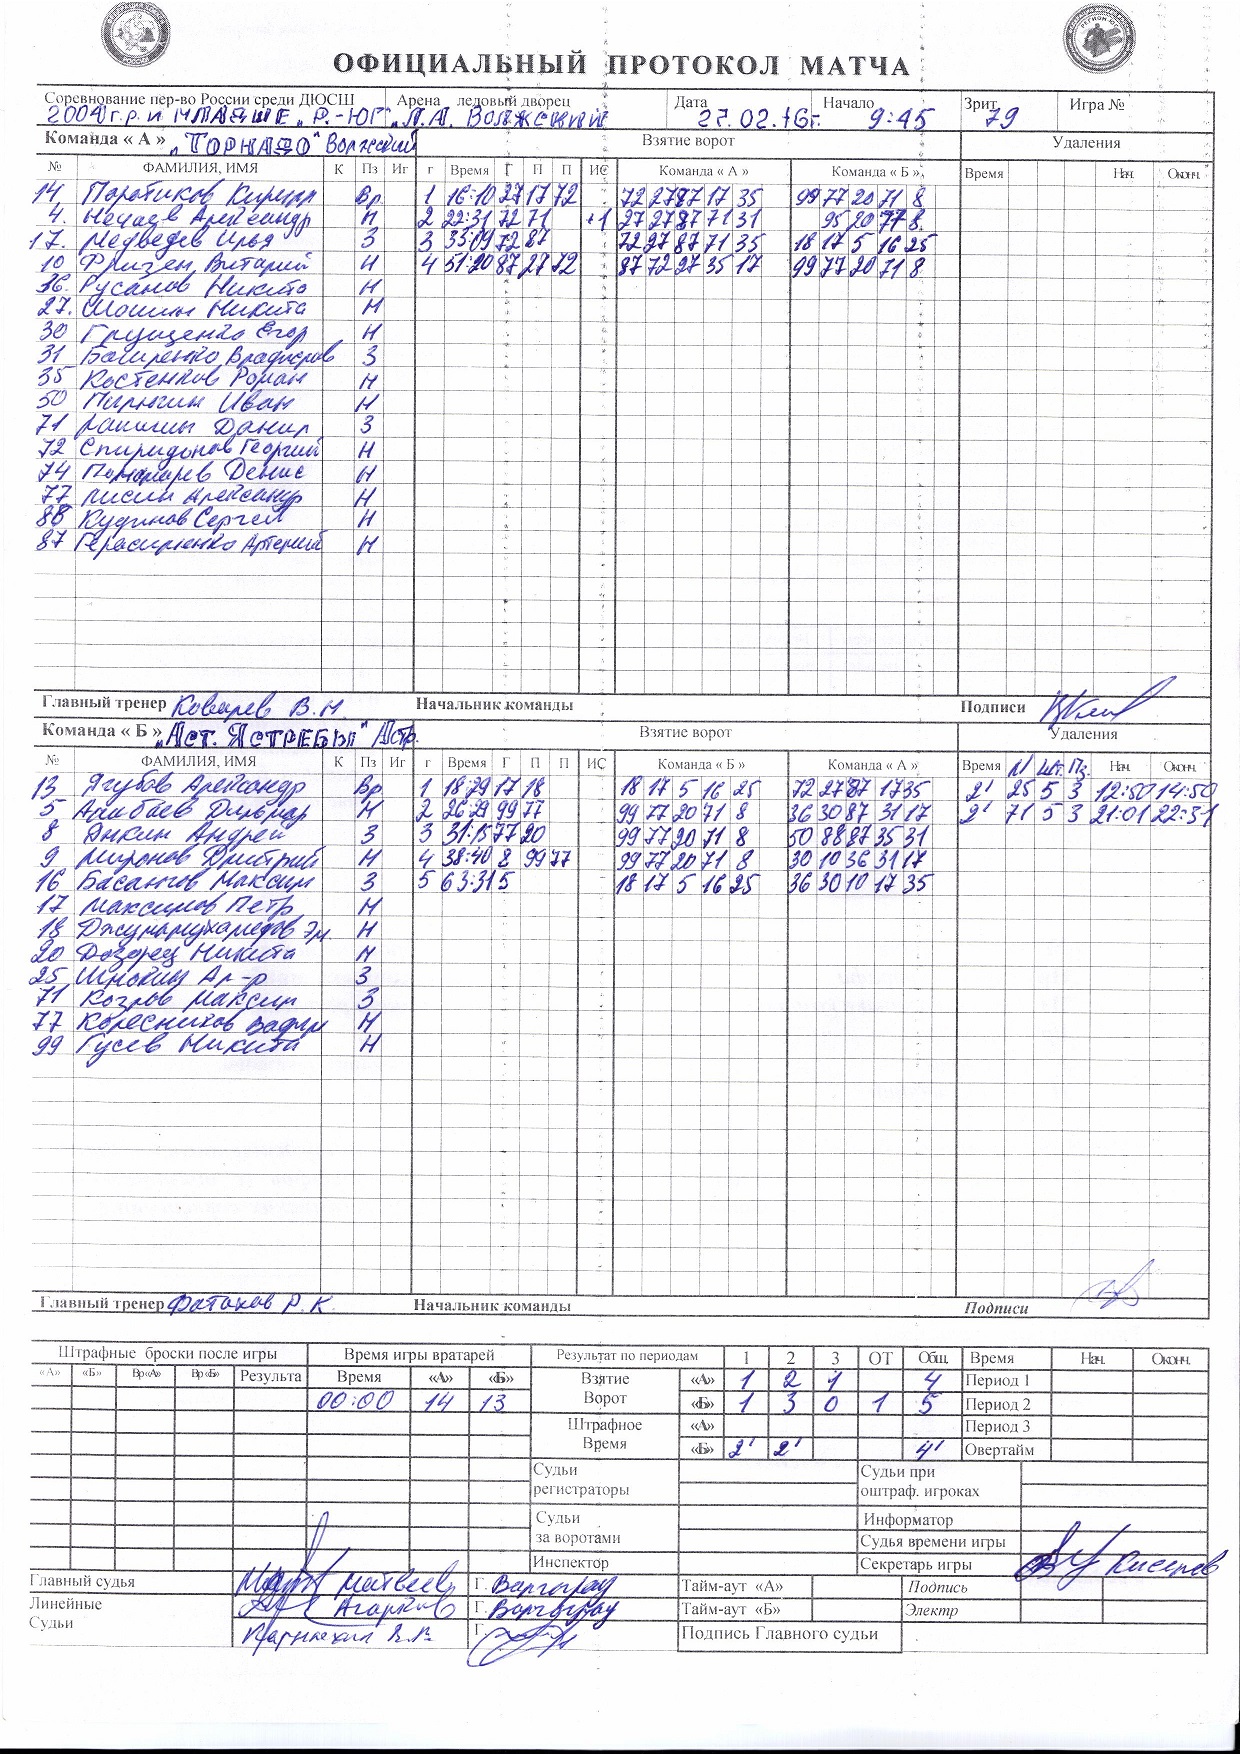 ОФИЦИАЛЬНЫЙ ПРОТОКОЛ МАТЧА
Соревнование пер-во России среди ДЮСШ Арена ледовый дворец Дата Начало Зрит Игра №
2004 г.р. и МЛАДШЕ „Р.-ЮГ" „Л.А. Волжский 27.02.16г. 9:45 79
Команда « А » „ТОРНАДО" Волжский Взятие ворот Удаления
№ ФАМИЛИЯ, ИМЯ К Пз Иг г Время Г П П ИС Команда « А » Команда « Б » Время Нач. Оконч.
14 Кирилл Вр 1 16:10 27 17 72 72 27 87 17 35 99 77 20 71 8
4. Нечаев Александр Н 2 22:31 72 71 +1 27 27 87 71 31 95 20 77 8
17. Медведев Илья З 3 35:09 72 87 72 27 87 71 35 18 17 5 16 25
10 Фризен Виталий Н 4 51:20 87 27 72 87 72 27 35 17 99 77 20 71 8
36. Русанов Никита Н
27. Никита Н
30 Грищенко Егор Н
31 Владислав З
35 Костенков Роман Н
50 Пирюгин Иван Н
71 Данил З
72 Спиридонов Георгий Н
74 Пономарев Денис Н
77 Лисин Александр Н
88 Кудинов Сергей Н
87 Герасименко Артемий Н
Главный тренер Ковалев В.Н. Начальник команды Подписи
Команда « Б » „Аст. ЯСТРЕБЫ" Астр. Взятие ворот Удаления
№ ФАМИЛИЯ, ИМЯ К Пз Иг г Время Г П П ИС Команда « Б » Команда « А » Время № Шт. Пз. Нач. Оконч.
13 Ягубов Александр Вр 1 18:29 17 18 18 17 5 16 25 72 27 87 17 35 2' 25 5 3 12:50 14:50
5 Дильмар Н 2 26:29 99 77 99 77 20 71 8 36 30 87 31 17 2' 71 5 3 21:01 22:31
8 Аикин Андрей З 3 31:15 77 20 99 77 20 71 8 50 88 87 35 31
9 Миронов Дмитрий Н 4 38:40 8 99 77 99 77 20 71 8 30 10 36 31 17
16 Басангов Максим З 5 63:31 5 18 17 5 16 25 36 30 10 17 35
17 Максимов Петр Н
18 Джумамухамедов Эм Н
20 Дозорец Никита Н
25 Ал-р З
71 Козлов Максим З
77 Колесников Вадим Н
99 Гусев Никита Н
Главный тренер Фатахов Р.К. Начальник команды Подписи
Штрафные броски после игры Время игры вратарей Результат по периодам 1 2 3 ОТ Общ. Время Нач. Оконч.
«А» «Б» Вр«А» Вр«Б» Результа Время «А» «Б» Взятие Ворот «А» 1 2 1 4 Период 1
00:00 14 13 «Б» 1 3 0 1 5 Период 2
Штрафное Время «А» Период 3
«Б» 2' 2' 4' Овертайм
Судьи регистраторы Судьи при оштраф. игроках
Судьи за воротами Информатор
Судья времени игры
Инспектор Секретарь игры Киселев
Главный судья Матвеев Г. Волгоград Тайм-аут «А» Подпись
Линейные Судьи Агарков Г. Волгоград Тайм-аут «Б» Электр
Г. Подпись Главного судьи